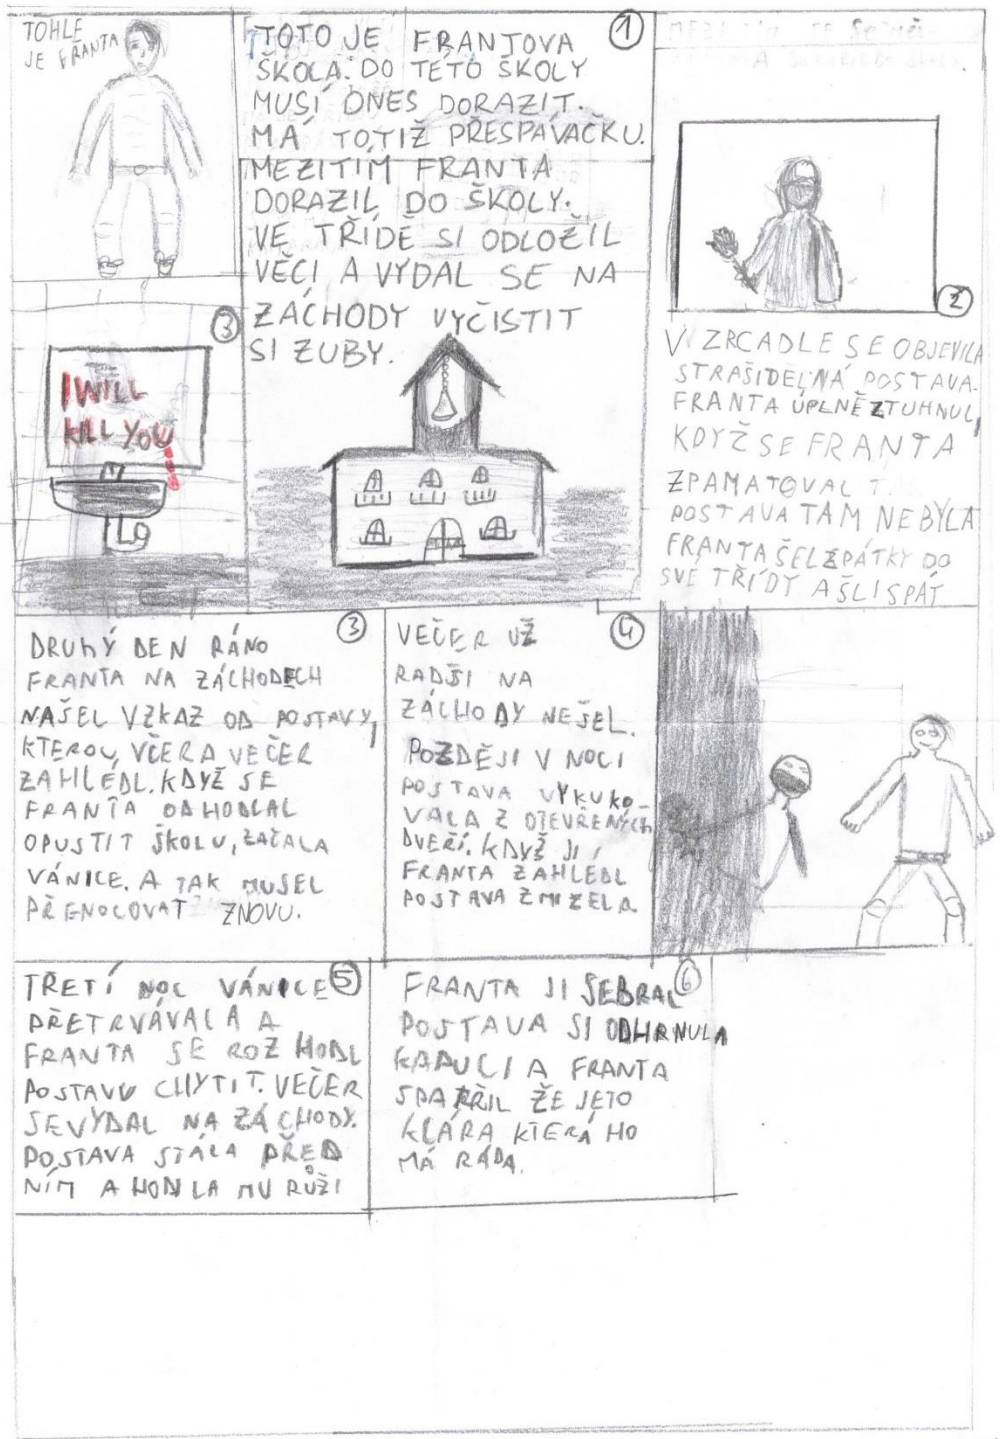 TOHLE
JE FRANTA
1
TOTO JE FRANTOVA
ŠKOLA. DO TÉTO ŠKOLY
MUSÍ DNES DORAZIT.
MÁ TOTIŽ PŘESPÁVAČKU.
MEZITÍM FRANTA
DORAZIL DO ŠKOLY.
VE TŘÍDĚ SI ODLOŽIL
VĚCI A VYDAL SE NA
ZÁCHODY VYČISTIT
SI ZUBY.
2
V ZRCADLE SE OBJEVILA
STRAŠIDELNÁ POSTAVA.
FRANTA ÚPLNĚ ZTUHNUL,
KDYŽ SE FRANTA
ZPAMATOVAL T.
POSTAVA TAM NEBYLA
FRANTA ŠEL ZPÁTKY DO
SVÉ TŘÍDY A ŠLI SPÁT
3
I WILL
KILL YOU
3
DRUHÝ DEN RÁNO
FRANTA NA ZÁCHODECH
NAŠEL VZKAZ OD POSTAVY,
KTEROU VČERA VEČER
ZAHLEDL. KDYŽ SE
FRANTA ODHODLAL
OPUSTIT ŠKOLU, ZAČALA
VÁNICE. A TAK MUSEL
PŘENOCOVAT ZNOVU.
4
VEČER UŽ
RADŠI NA
ZÁCHODY NEŠEL.
POZDĚJI V NOCI
POSTAVA VYKUKO-
VALA Z OTEVŘENÝCH
DVEŘÍ. KDYŽ JI
FRANTA ZAHLEDL
POSTAVA ZMIZELA
5
TŘETÍ NOC VÁNICE
PŘETRVÁVALA A
FRANTA SE ROZHODL
POSTAVU CHYTIT. VEČER
SE VYDAL NA ZÁCHODY.
POSTAVA STÁLA PŘED
NÍM A HODILA MU RŮŽI
6
FRANTA JI SEBRAL
POSTAVA SI ODHRNULA
KAPUCI A FRANTA
SPATŘIL ŽE JE TO
KLÁRA KTERÁ HO
MÁ RÁDA.